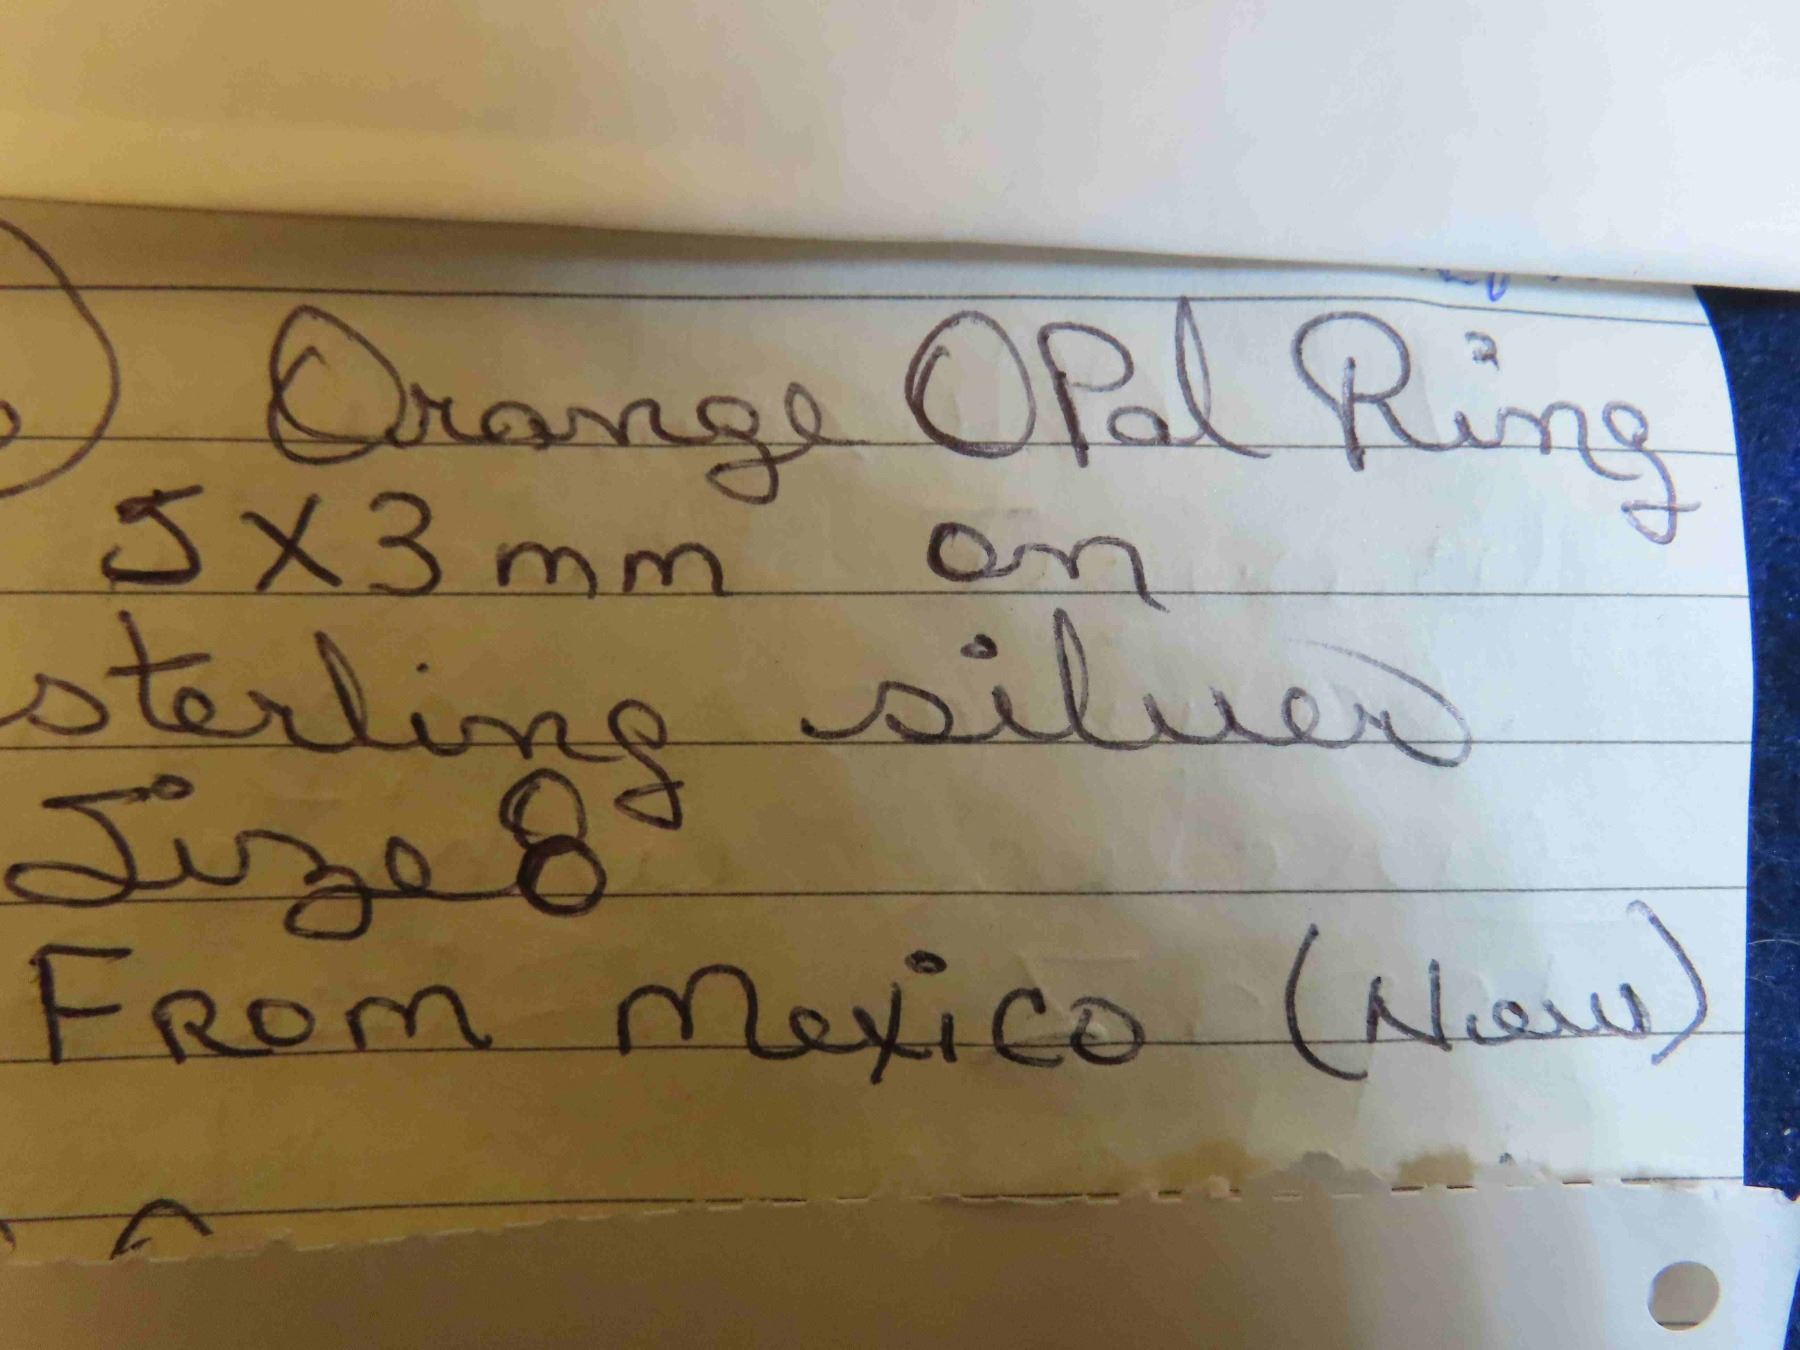 Orange OPal Ring
5X3mm on
sterling silver
Size 8
FROM Mexico (New)